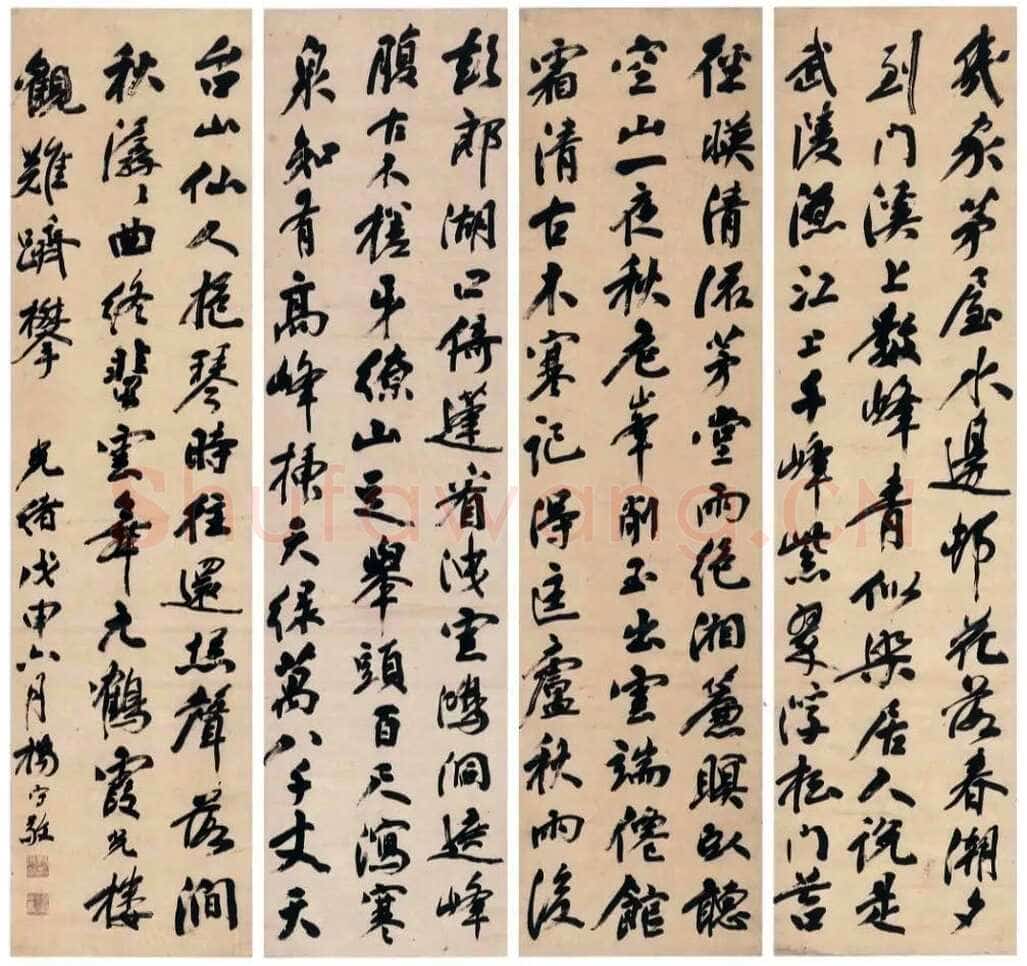 幾家茅屋水邊邨花落春潮夕
到门溪上數峰青似染居人说是
武陵源江上千峰紫翠浮松门苔
徑暎清流茅堂雨绝湘簾暝臥聽
空山一夜秋危峯削玉出雲端僊館
霜清古木寒记得匡廬秋雨後
彭郎湖口倚蓬看洩雲澒洞遶峰
腹古木槎牙缭山足舉頭百尺瀉寒
泉知有高峰插天绿萬八千丈天
台山仙人抱琴時往還松聲落澗
秋潺〻曲终翠雲舞九鶴霞光樓
觀難躋攀 光绪戊申六月楊守敬
Shufawang.CN